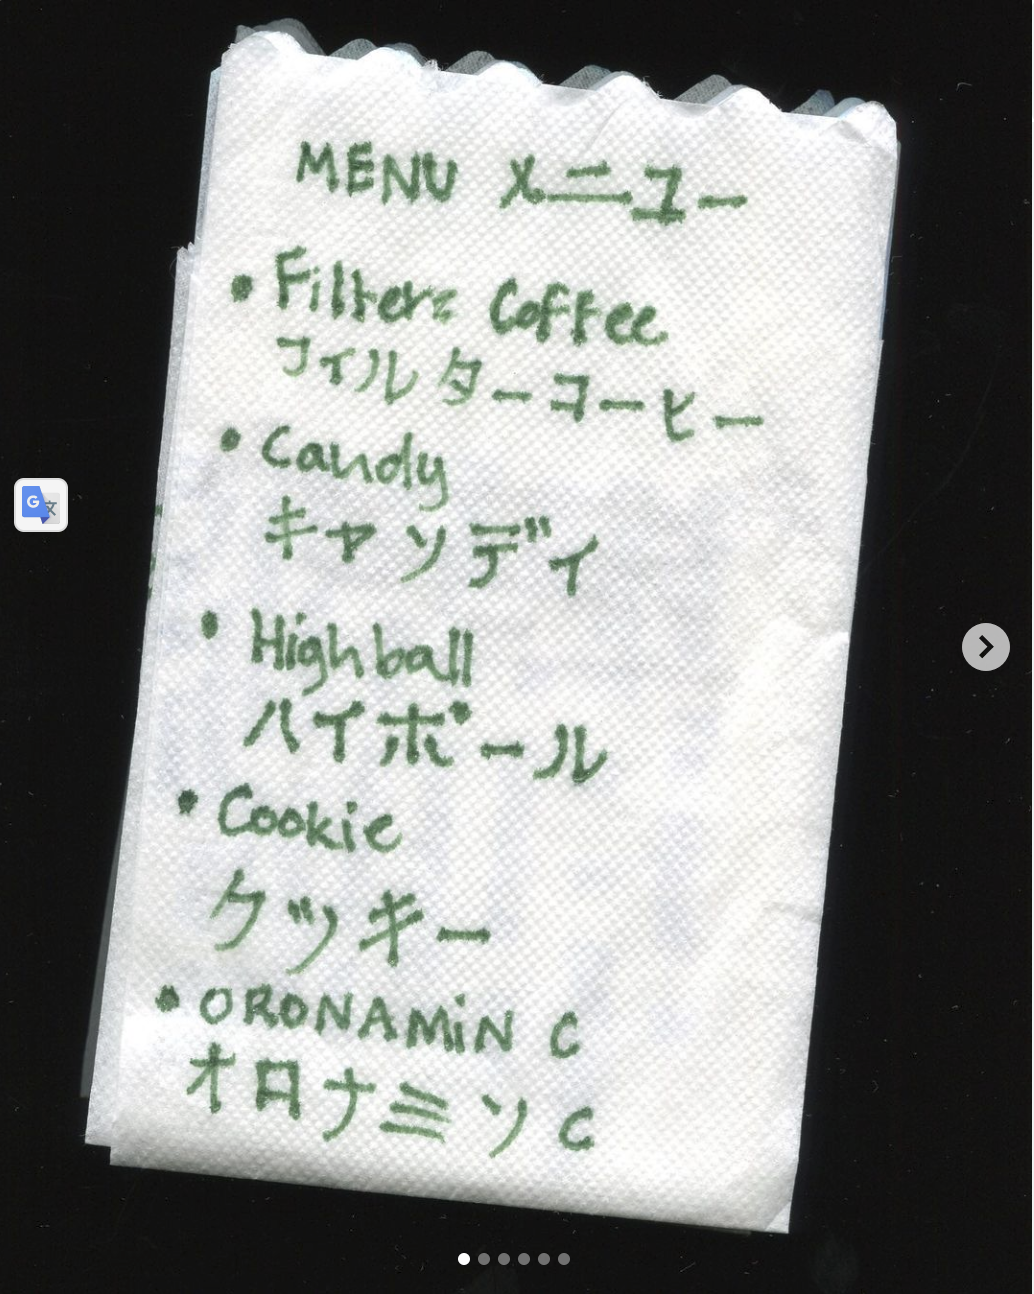 MENU メニュー
• Filter Coffee
フィルターコーヒー
• Candy
キャンディ
• Highball
ハイボール
• Cookie
クッキー
• ORONAMiN C
オロナミンC